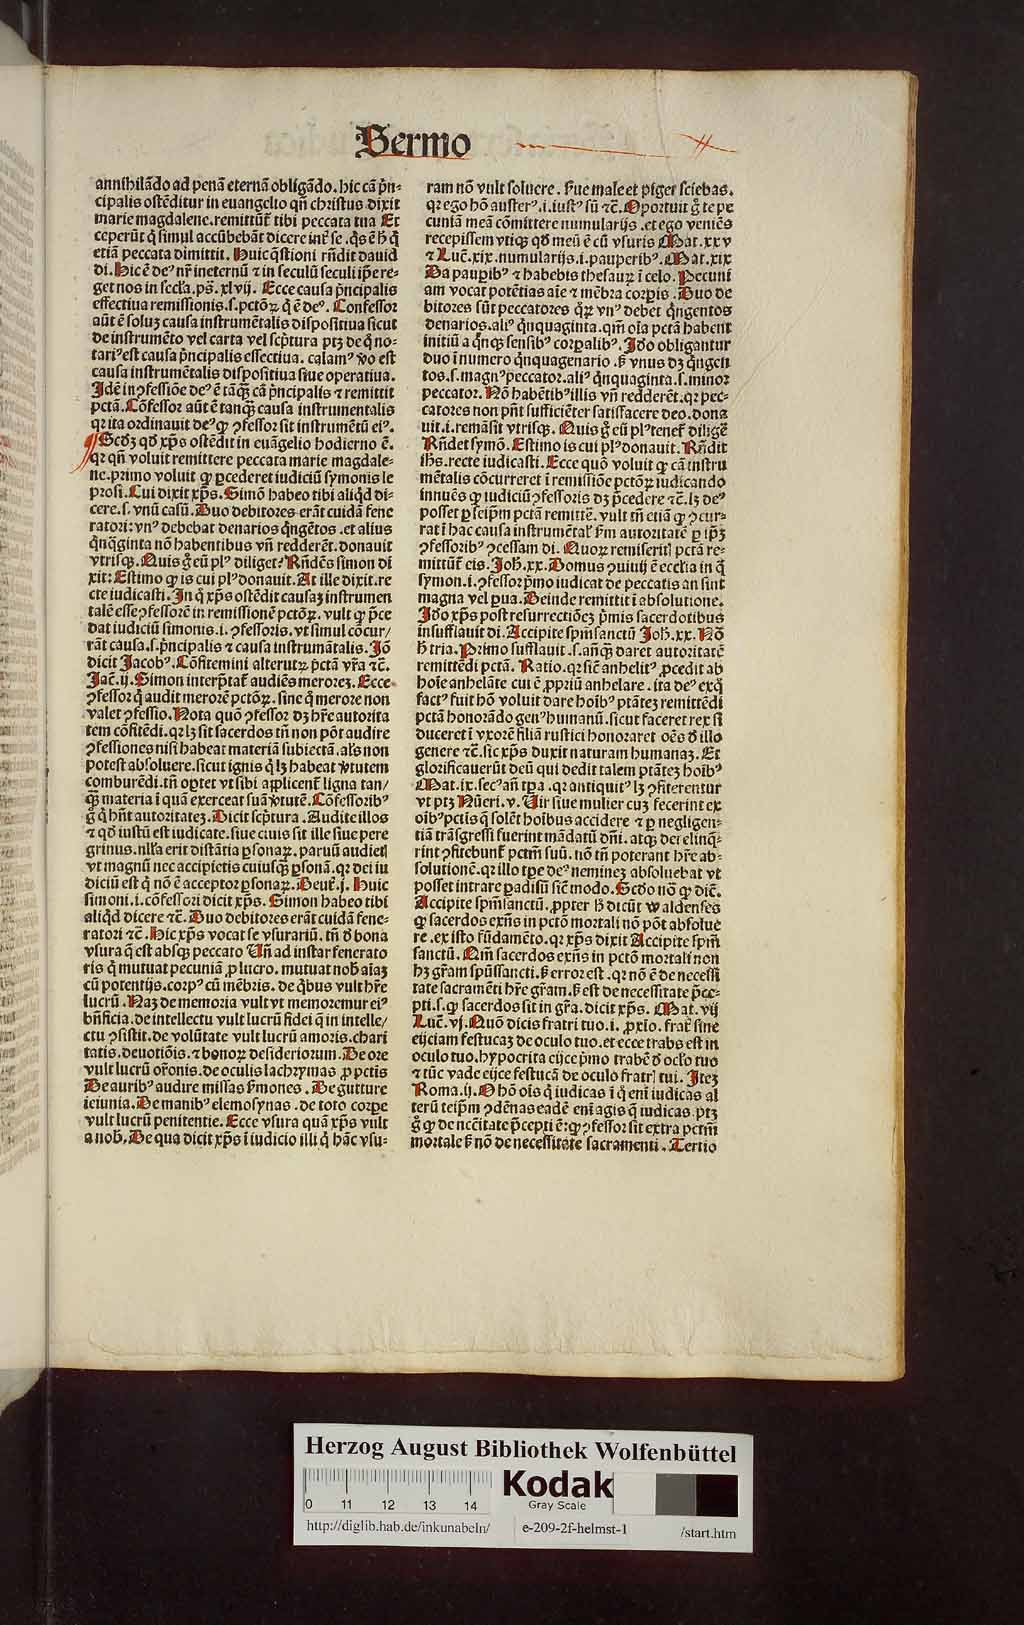 Sermo
annihilãdo ad penã eternã obligãdo. hic cã p̃n-
cipalis ostẽditur in euangelio qñ christus dixit
marie magdalene. remittũt᷑ tibi peccata tua Et
ceperũt q̃ simul accũbebãt dicere int᷑ se. q̃s ẽ h̃ q̃
etiã peccata dimittit. Huic q̃stioni rñdit dauid
di. Hic ẽ deꝰ nr̃ ineternũ ⁊ in seculũ seculi ip̃e re-
get nos in sccl̃a. ps̃. xlvij. Ecce causa p̃ncipalis
effectiua remissionis. s. pctõꝝ. q̃ ẽ deꝰ. Confessor
aũt ẽ soluꝫ causa instrumẽtalis dispositiua sicut
de instrumẽto vel carta vel scp̃tura ptꝫ de q̃ no-
tariꝰ est causa p̃ncipalis effectiua. calamꝰ ṽo est
causa instrumẽtalis dispositiua siue operatiua.
Idẽ in ꝯfessiõe deꝰ ẽ tãqꝫ cã p̃ncipalis ⁊ remittit
pctã. Cõfessor aũt ẽ tanqꝫ causa instrumentalis
qꝛ ita ordinauit deꝰ ꝙ ꝯfessor sit instrumẽtũ eiꝰ.
¶ Scdꝫ qd̃ xp̃s ostẽdit in euãgelio hodierno ẽ.
qꝛ qñ voluit remittere peccata marie magdale-
ne. primo voluit ꝙ p̃cederet iudiciũ symonis le
prosi. Cui dixit xp̃s. Simõ habeo tibi aliqd̃ di-
cere. s. vnũ casũ. Duo debitores erãt cuidã fene
ratori: vnꝰ debebat denarios q̃ngẽtos. et alius
q̃nq̃ginta nõ habentibus vñ redderẽt. donauit
vtrisqꝫ. Quis g̃ eũ plꝰ diliget? Rñdẽs simon di
xit: Estimo ꝙ is cui plꝰ donauit. At ille dixit. re
cte iudicasti. In q̃ xp̃s ostẽdit causaꝫ instrumen
talẽ esse ꝯfessorẽ in remissionẽ pctõꝝ. vult ꝙ p̃ce
dat iudiciũ simonis. i. ꝯfessoris. vt simul cõcur/
rãt causa. s. p̃ncipalis ⁊ causa instrumẽtalis. Iõ
dicit Jacobꝰ. Cõfitemini alterutꝝ p̃ctã vr̃a ⁊c̃.
Jac̃. ij. Simon interp̃tat᷑ audiẽs meroreꝫ. Ecce
ꝯfessor q̃ audit merorẽ pctõꝝ. sine q̃ merore non
valet ꝯfessio. Nota quõ ꝯfessor dꝫ hr̃e autorita
tem cõfitẽdi. qꝛ lꝫ sit sacerdos tñ non põt audire
ꝯfessiones nisi habeat materiã subiectã. als̃ non
potest absoluere. sicut ignis q̃ lꝫ habeat ṽtutem
comburẽdi. tñ opꝫtet vt sibi applicent᷑ ligna tan/
qꝫ materia ĩ quã exerceat suã ṽtutẽ. Cõfessoribꝰ
g̃ q̃ hñt autoritateꝫ. Dicit scp̃tura. Audite illos
⁊ qd̃ iustũ est iudicate. siue ciuis sit ille siue pere
grinus. nlľa erit distãtia ꝑsonaꝝ. paruũ audietľ
vt magnũ nec accipietis cuiusqꝫ ꝑsonã. qꝛ dei iu
diciũ est q̃ nõ ẽ acceptor ꝑsonaꝝ. Deut̃. j. Huic
simoni. i. cõfessori dicit xp̃s. Simon habeo tibi
aliqd̃ dicere ⁊c̃. Duo debitores erãt cuidã fene-
ratori ⁊c̃. Hic xp̃s vocat se vsurariũ. tñ d̃ bona
vsura q̃ est absqꝫ peccato Vñ ad instar fenerato
ris q̃ mutuat pecuniã ꝓ lucro. mutuat nob̃ aĩaꝫ
cũ potentijs. corpꝰ cũ mẽbris. de q̃bus vult hr̃e
lucrũ. Naꝫ de memoria vult vt memoremur eiꝰ
bñficia. de intellectu vult lucrũ fidei q̃ in intelle/
ctu ꝯsistit. de volũtate vult lucrũ amoris. chari
tatis. deuotiõis. ⁊ bonoꝝ desideriorum. De ore
vult lucrũ or̃onis. de oculis lachrymas ꝓ pctis
De auribꝰ audire missas sermones. De gutture
ieiunia. De manibꝰ elemosynas. de toto corpꝫ
vult lucrũ penitentie. Ecce vsura quã xp̃s vult
a nob̃, De qua dicit xp̃s ĩ iudicio illi q̃ hãc vsu-
ram nõ vult soluere. Serue male et piger sciebas.
qꝛ ego hõ austerꝰ. i. iustꝰ sũ ⁊c̃. Oportuit g̃ te pe
cuniã meã cõmittere numularijs. et ego veniẽs
recepissem vtiqꝫ qd̃ meũ ẽ cũ vsuris Mat. xxv
⁊ Luc̃. xix. numularijs. i. pauperibꝰ. Mat. xix
Da pauꝑibꝰ ⁊ habebis thesauꝝ ĩ celo. Pecuni
am vocat potẽtias aĩe ⁊ mẽbra corꝑis. Duo de
bitores sũt peccatores q̃ꝝ vnꝰ debet q̃ngentos
denarios. aliꝰ q̃nquaginta. qm̃ oĩa pctã habent
initiũ a q̃nqꝫ sensibꝰ corꝑalibꝰ. Ideo obligantur
duo ĩ numero q̃nquagenario. sꝫ vnus dꝫ q̃ngen
tos. s. magnꝰ peccator. aliꝰ q̃nquaginta. s. minor
peccator. Nõ habẽtibꝰ illis vñ redderẽt. qꝛ pec-
catores non pñt sufficiẽter satisfacere deo. dona
uit. i. remãsit vtrisqꝫ. Quis g̃ eũ plꝰ tenet᷑ diligẽ
Rñdet symõ. Estimo is cui plꝰ donauit. Rñdit
ih̃s. recte iudicasti. Ecce quõ voluit ꝙ cã instru
mẽtalis cõcurreret ĩ remissiõe pctõꝝ iudicando
innuẽs ꝙ iudiciũ ꝯfessoris dꝫ p̃cedere ⁊c̃. lꝫ deꝰ
posset ꝑ seip̃m pctã remittẽ. vult tñ etiã ꝙ ꝯcur-
rat ĩ hac causa instrumẽtal᷑ sm̃ autoritatẽ ꝑ ip̃ꝫ
ꝯfessoribꝰ ꝯcessam di. Quoꝝ remiseritl pctã re-
mittũt᷑ eis. Joh̃. xx. Domus ꝯuiuij ẽ ecclẽia in q̃
symon. i. ꝯfessor p̃mo iudicat de peccatis an sint
magna vel ꝑua. Deinde remittit ĩ absolutione.
Ideo xp̃s post resurrectiõeꝫ p̃mis sacerdotibus
insufflauit di. Accipite sp̃m sanctũ Joh̃. xx. Nõ
h̃ tria. Primo sufflauit. s. añqꝫ daret autoritatẽ
remittẽdi pctã. Ratio. qꝛ sic̃ anhelitꝰ ꝓcedit ab
hoĩe anhelãte cui ẽ ꝓpriũ anhelare. ita deꝰ exq̃
factꝰ fuit hõ voluit dare hoĩbꝰ ptãteꝫ remittẽdi
pctã honorãdo genꝰ humanũ. sicut faceret rex si
duceret ĩ vxorẽ filiã rustici honoraret oẽs d̃ illo
genere ⁊c̃. sic xp̃s duxit naturam humanaꝫ. Et
glorificauerũt deũ qui dedit talem ptãteꝫ hoĩbꝰ
Mat. ix. secꝰ añ tꝑa. qꝛ antiquitꝰ lꝫ ꝯfiterentur
vt ptꝫ Nũeri. v. Vir siue mulier cuꝫ fecerint ex
oĩbꝰ pctis q̃ solẽt hoĩbus accidere ⁊ ꝑ negligen-
tiã trãsgressi fuerint mãdatũ dñi. atqꝫ derelinq̃-
rint ꝯfitebunt᷑ pctm̃ suũ. nõ tñ poterant hr̃e ab-
solutionẽ. qꝛ illo tꝑe deꝰ nemineꝫ absoluebat vt
posset intrare ꝑadisũ sic̃ modo. Scd̃o nõ ꝙ dic̃.
Accipite sp̃m sanctũ. ꝓpter h̃ dicũt waldenses
ꝙ sacerdos exñs in pctõ mortali nõ põt absolue
re. ex isto fũdamẽto. qꝛ xp̃s dixit Accipite sp̃m
sanctũ. Qm̃ sacerdos exñs in pctõ mortali non
hꝫ gr̃am sp̃ussancti. sꝫ error est. qꝛ nõ ẽ de necessi
tate sacramẽti hr̃e gr̃am. sꝫ est de necessitate p̃ce-
pti. s. ꝙ sacerdos sit in gr̃a. dicit xp̃s. Mat. vij
Luc̃. vj. Quõ dicis fratri tuo. i. ꝓxĩo. frat᷑ sine
eijciam festucaꝫ de oculo tuo. et ecce trabs est in
oculo tuo. hypocrita eijce p̃mo trabẽ d̃ ocľo tuo
⁊ tũc vade eijce festucã de oculo fratrl tui. Iteꝫ
Roma. ij. O hõ oĩs q̃ iudicas ĩ q̃ enĩ iudicas al
terũ teip̃m ꝯdẽnas eadẽ enĩ agis q̃ iudicas. ptꝫ
g̃ ꝙ de ncc̃itate p̃cepti ẽ: ꝙ ꝯfessor sit extra pctm̃
mortale sꝫ nõ de necessitate sacramenti. Tertio
Herzog August Bibliothek Wolfenbüttel
0 11 12 13 14
Kodak
Gray Scale
http://diglib.hab.de/inkunabeln/
e-209-2f-helmst-1
/start.htm